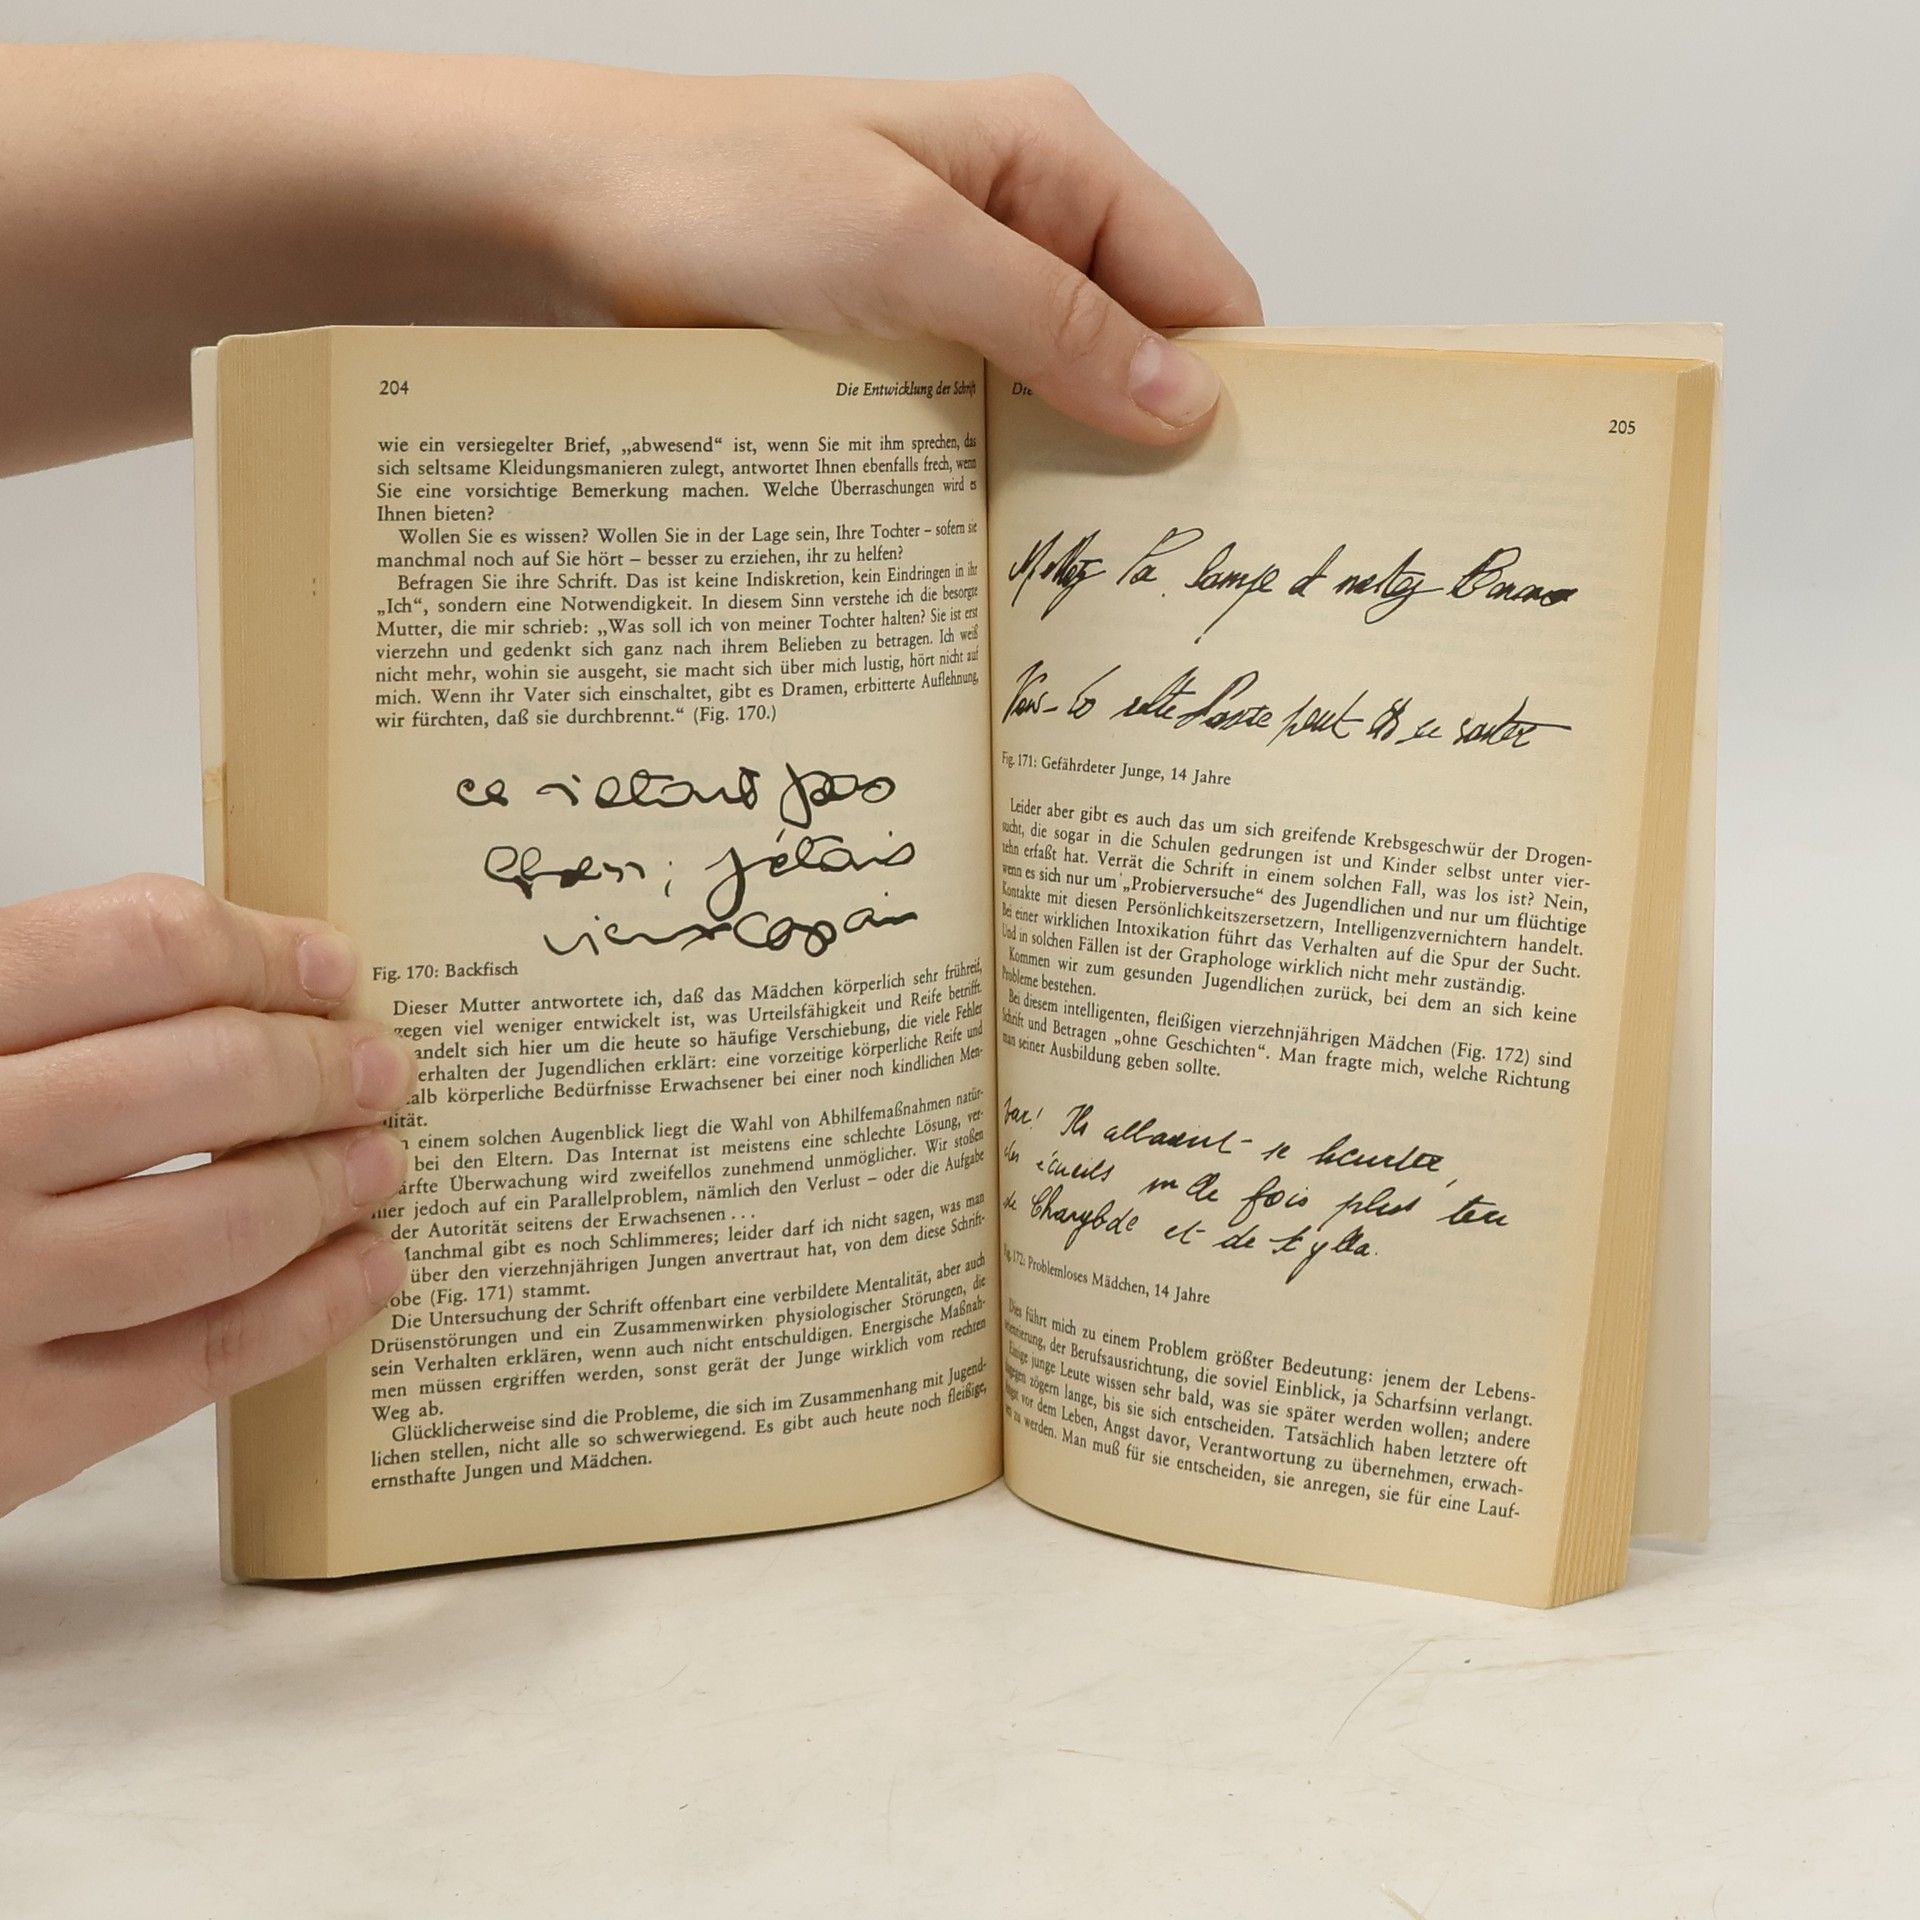 204
Die Entwicklung der Schrift
wie ein versiegelter Brief, „abwesend“ ist, wenn Sie mit ihm sprechen, das
sich seltsame Kleidungsmanieren zulegt, antwortet Ihnen ebenfalls frech, wenn
Sie eine vorsichtige Bemerkung machen. Welche Überraschungen wird es
Ihnen bieten?
Wollen Sie es wissen? Wollen Sie in der Lage sein, Ihre Tochter – sofern sie
manchmal noch auf Sie hört – besser zu erziehen, ihr zu helfen?
Befragen Sie ihre Schrift. Das ist keine Indiskretion, kein Eindringen in ihr
„Ich“, sondern eine Notwendigkeit. In diesem Sinn verstehe ich die besorgte
Mutter, die mir schrieb: „Was soll ich von meiner Tochter halten? Sie ist erst
vierzehn und gedenkt sich ganz nach ihrem Belieben zu betragen. Ich weiß
nicht mehr, wohin sie ausgeht, sie macht sich über mich lustig, hört nicht auf
mich. Wenn ihr Vater sich einschaltet, gibt es Dramen, erbitterte Auflehnung,
wir fürchten, daß sie durchbrennt.“ (Fig. 170.)
ce n'etait pas
; j'étais
vieux copain
Fig. 170: Backfisch
Dieser Mutter antwortete ich, daß das Mädchen körperlich sehr frühreif,
gegen viel weniger entwickelt ist, was Urteilsfähigkeit und Reife betrifft.
andelt sich hier um die heute so häufige Verschiebung, die viele Fehler
erhalten der Jugendlichen erklärt: eine vorzeitige körperliche Reife und
alb körperliche Bedürfnisse Erwachsener bei einer noch kindlichen Men-
lität.
einem solchen Augenblick liegt die Wahl von Abhilfemaßnahmen natür-
bei den Eltern. Das Internat ist meistens eine schlechte Lösung, ver-
ärfte Überwachung wird zweifellos zunehmend unmöglicher. Wir stoßen
hier jedoch auf ein Parallelproblem, nämlich den Verlust – oder die Aufgabe
der Autorität seitens der Erwachsenen . . .
Manchmal gibt es noch Schlimmeres; leider darf ich nicht sagen, was man
über den vierzehnjährigen Jungen anvertraut hat, von dem diese Schrift-
obe (Fig. 171) stammt.
Die Untersuchung der Schrift offenbart eine verbildete Mentalität, aber auch
Drüsenstörungen und ein Zusammenwirken physiologischer Störungen, die
sein Verhalten erklären, wenn auch nicht entschuldigen. Energische Maßnah-
men müssen ergriffen werden, sonst gerät der Junge wirklich vom rechten
Weg ab.
Glücklicherweise sind die Probleme, die sich im Zusammenhang mit Jugend-
lichen stellen, nicht alle so schwerwiegend. Es gibt auch heute noch fleißige,
ernsthafte Jungen und Mädchen.
205
Mettez la lampe et mettez
cette peut se
Fig. 171: Gefährdeter Junge, 14 Jahre
Leider aber gibt es auch das um sich greifende Krebsgeschwür der Drogen-
sucht, die sogar in die Schulen gedrungen ist und Kinder selbst unter vier-
zehn erfaßt hat. Verrät die Schrift in einem solchen Fall, was los ist? Nein,
wenn es sich nur um „Probierversuche“ des Jugendlichen und nur um flüchtige
Kontakte mit diesen Persönlichkeitszersetzern, Intelligenzvernichtern handelt.
Bei einer wirklichen Intoxikation führt das Verhalten auf die Spur der Sucht.
Und in solchen Fällen ist der Graphologe wirklich nicht mehr zuständig.
Kommen wir zum gesunden Jugendlichen zurück, bei dem an sich keine
Probleme bestehen.
Bei diesem intelligenten, fleißigen vierzehnjährigen Mädchen (Fig. 172) sind
Schrift und Betragen „ohne Geschichten“. Man fragte mich, welche Richtung
man seiner Ausbildung geben sollte.
bar! Ils allaient se heurter,
des écueils mille fois plus
de Charybde et de Scylla.
Fig. 172: Problemloses Mädchen, 14 Jahre
Dies führt mich zu einem Problem größter Bedeutung: jenem der Lebens-
orientierung, der Berufsausrichtung, die soviel Einblick, ja Scharfsinn verlangt.
Einige junge Leute wissen sehr bald, was sie später werden wollen; andere
dagegen zögern lange, bis sie sich entscheiden. Tatsächlich haben letztere oft
Angst vor dem Leben, Angst davor, Verantwortung zu übernehmen, erwach-
sen zu werden. Man muß für sie entscheiden, sie anregen, sie für eine Lauf-